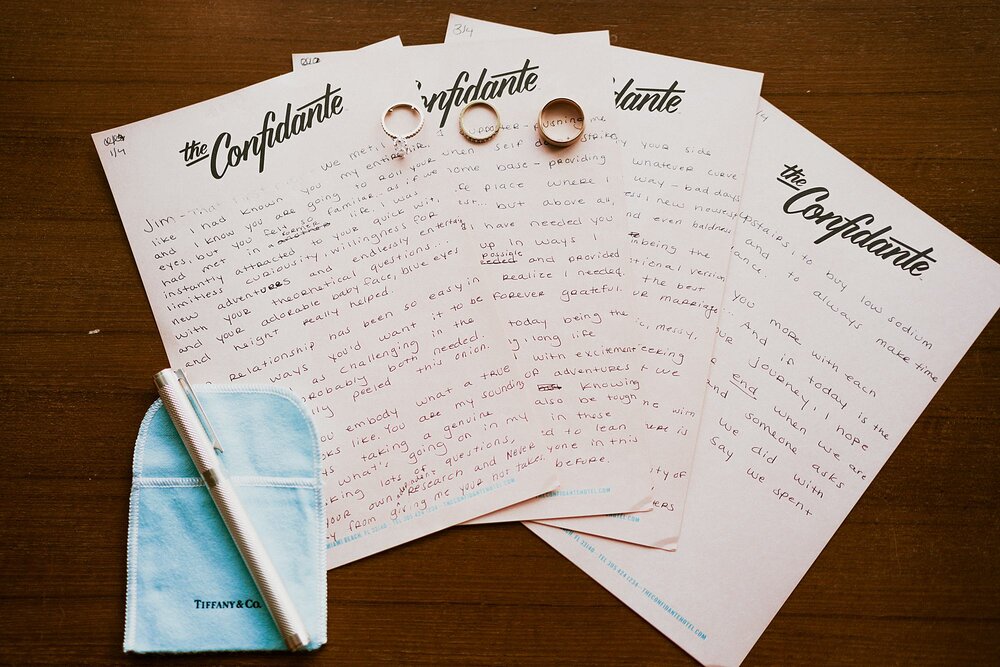 1/4
the Confidante
we met, I
Jim - That
like I had known you my entire life.
and I know you are going to roll your
eyes, but you felt so familiar - as if we
had met in a former life. I was
instantly attracted to your quick wit,
limitless curiousity, willingness for
new adventures and endlessly entertaining
with your theoretical questions...
and your adorable baby face, blue eyes
and height really helped.
relationship has been so easy in
ways you'd want it to be
as challenging in the
probably both needed.
lly peeled this onion.
ou embody what a TRUE
oks like. You are my sounding
ys taking a genuine
what's going on in my
king lots of questions,
your own research and
y from giving me your hot takes.
MIAMI BEACH, FL 33140 . TEL 305 424 1234 . THECONFIDANTEHOTEL.COM
Confidante
a updater - pushing me
when self d
some base - providing
place where I
... but above all,
have needed you
up in ways I
possible
and provided
realize I needed.
FOREVER grateful.
today being the
long life
with excitement
of adventures
knowing
also be tough
in those
to lean
never
before.
HOTEL.COM
3/4
dante
by your side
whatever curve
way - bad days
new newest
and even baldness
being the
tional version
the best
our marriage
messy,
seeking
& we
me with
here is
yone in this
ity of
.COM
/4
the Confidante
upstairs, to buy low sodium
and to always make time
ance.
you more with each
. And if today is the
our journey, I hope
end when we are
and someone asks
we did with
say we spent
33140 . TEL 305 424 1234 . THECONFIDANTEHOTEL.COM
TIFFANY & CO.